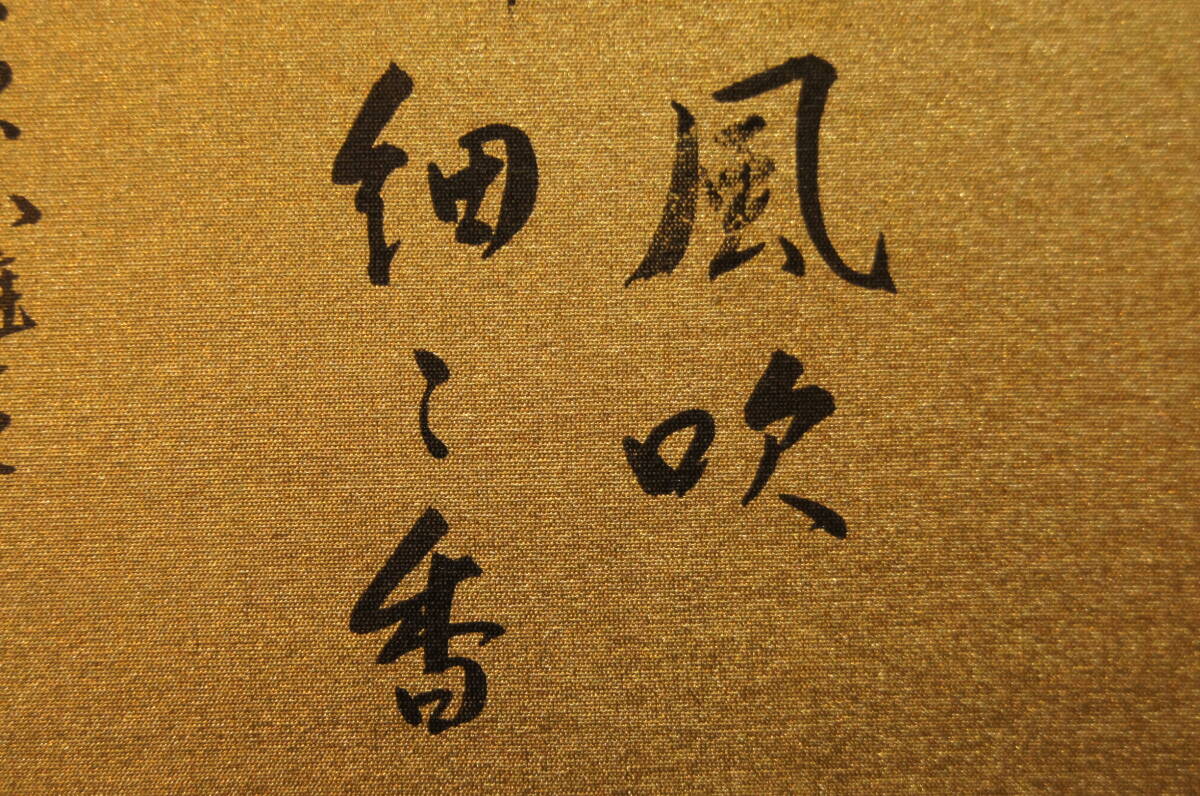 風吹
細〻香